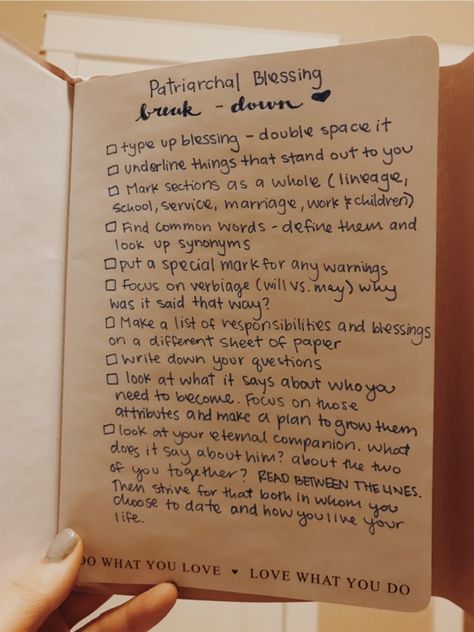 Patriarchal Blessing
break - down ♥
☐ type up blessing - double space it
☐ underline things that stand out to you
☐ Mark sections as a whole (lineage,
school, service, marriage, work & children)
☐ Find common words - define them and
look up synonyms
☐ put a special mark for any warnings
☐ Focus on verbiage (will vs. may) why
was it said that way?
☐ Make a list of responsibilities and blessings
on a different sheet of paper
☐ write down your questions
☐ look at what it says about who you
need to become. Focus on those
attributes and make a plan to grow them
☐ look at your eternal companion. What
does it say about him? about the two
of you together? READ BETWEEN THE LINES.
Then strive for that both in whom you
choose to date and how you live your
life.
DO WHAT YOU LOVE ♥ LOVE WHAT YOU DO